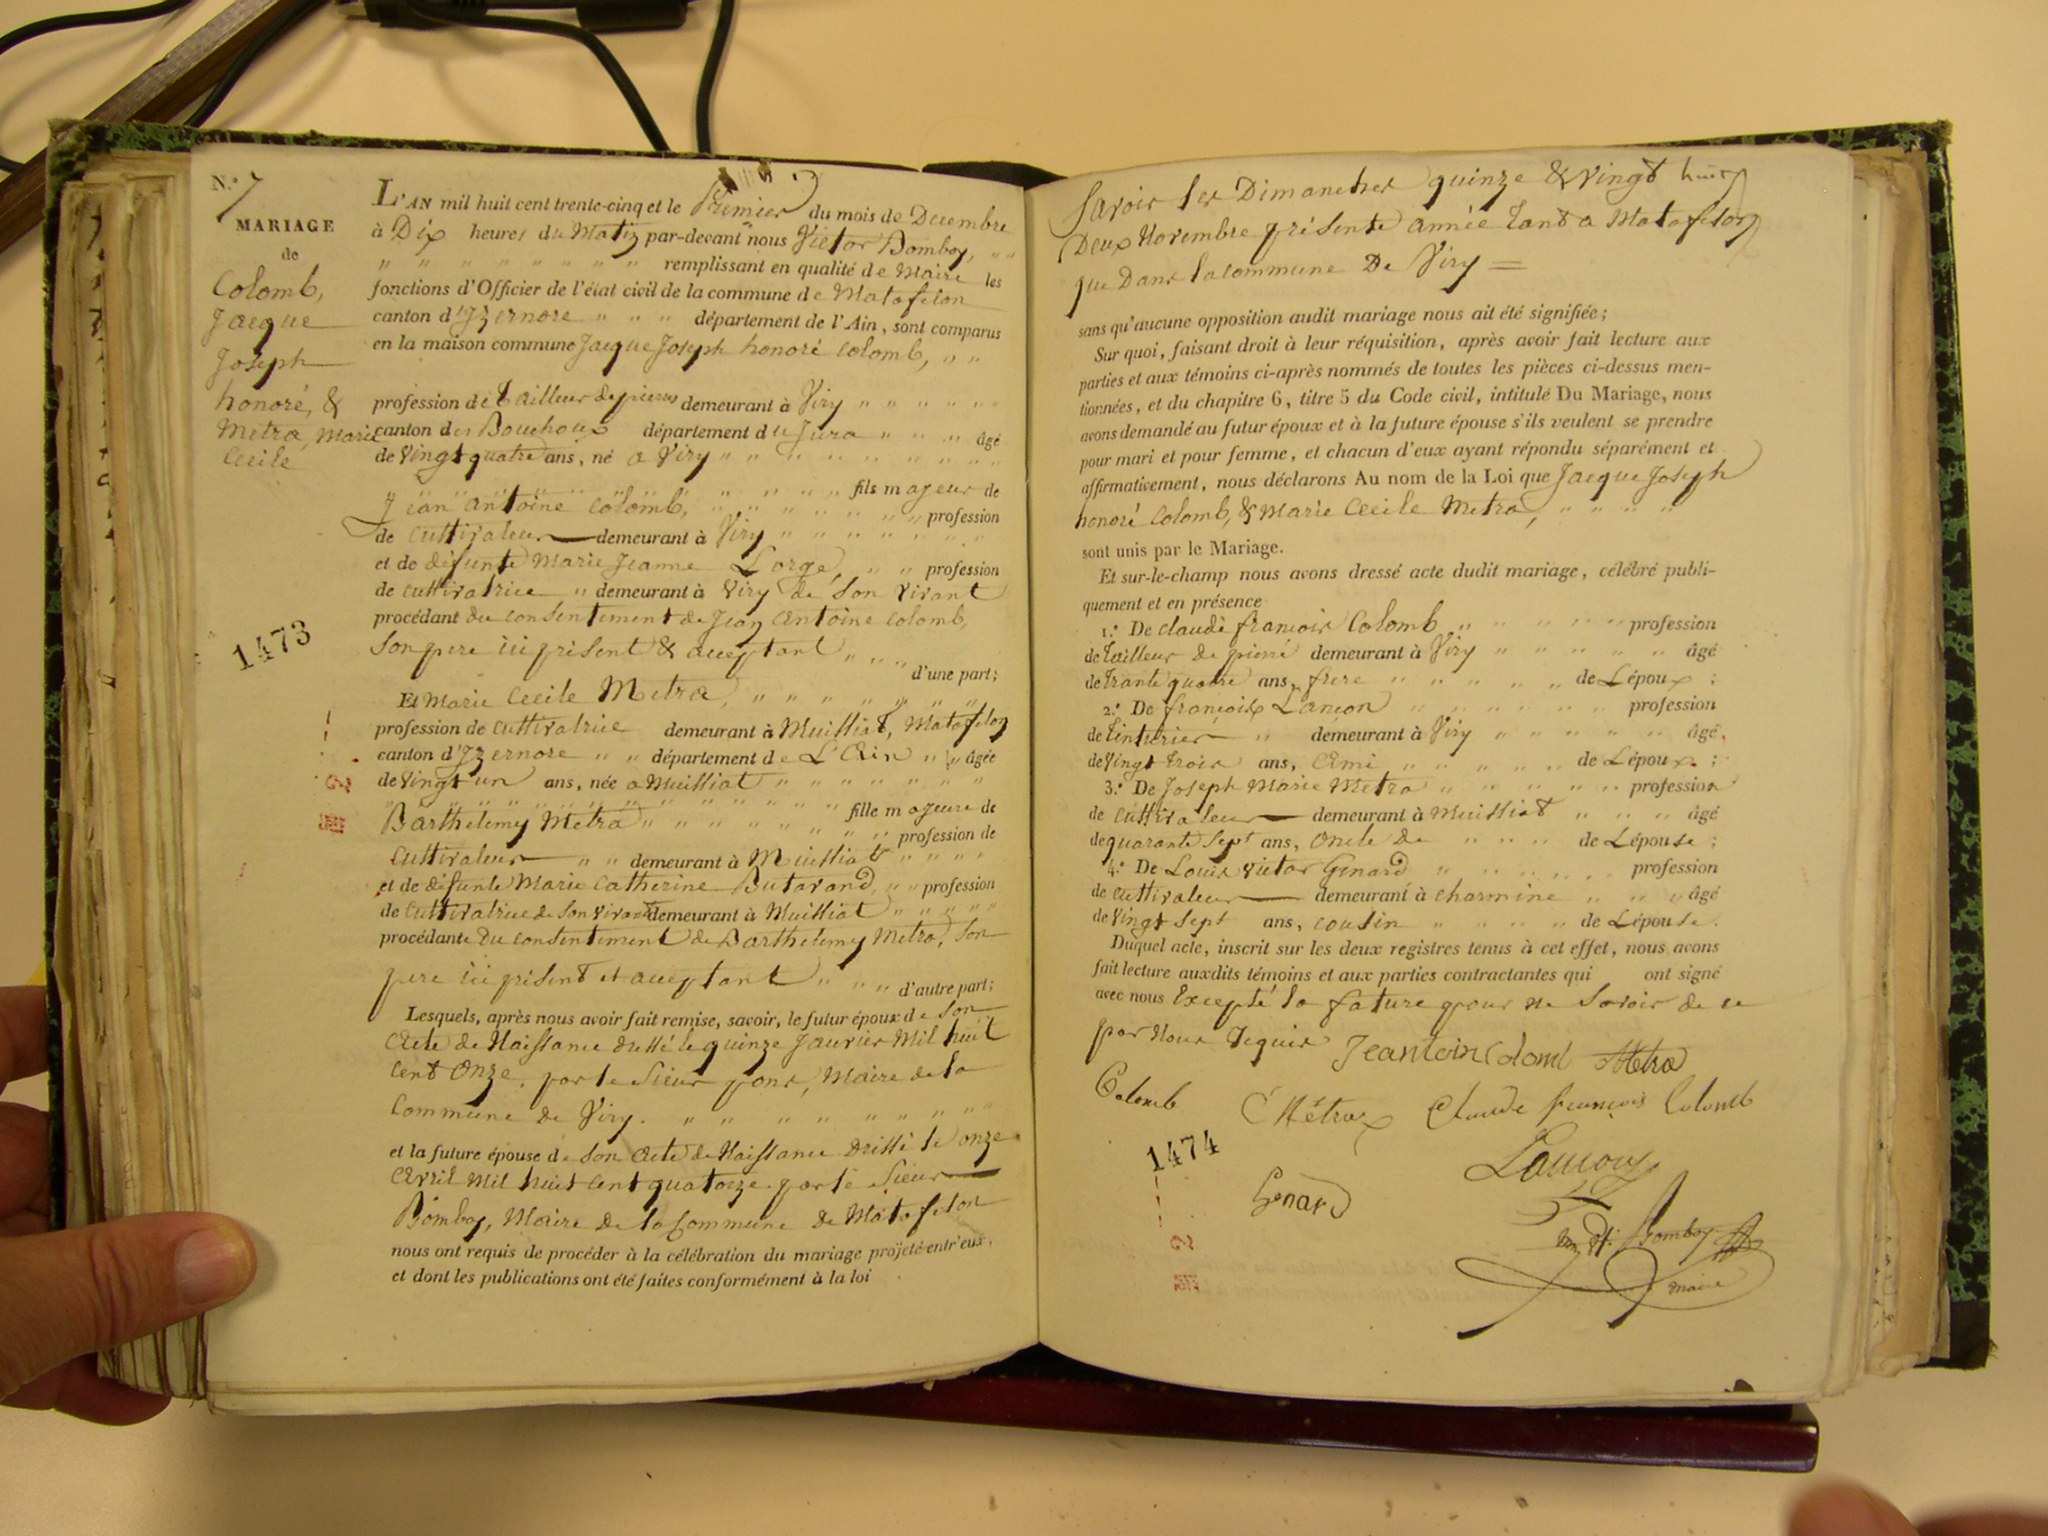 N.° 7
MARIAGE
de
Colomb,
Jacque
Joseph
honoré, &
Metra, Marie
Cecile
1473
L'AN mil huit cent trente-cinq et le Premier du mois de Decembre
à Dix heures du Matin par-devant nous Victor Bomboy,
remplissant en qualité de Maire les
fonctions d'Officier de l'état civil de la commune de Matafelon
canton d'Izernore département de l'Ain, sont comparus
en la maison commune Jacque Joseph honoré Colomb,
profession de tailleur de pierres demeurant à Viry
canton des Bouchoux département du Jura âgé
de vingt quatre ans, né a Viry
fils majeur de
jean antoine colomb, profession
de Cultivateur demeurant à Viry
et de défunte Marie Jeanne Lorge, profession
de cultivatrice demeurant à Viry de son vivant
procédant du consentement de Jean antoine colomb,
son pere ici présent & acceptant d'une part;
Et Marie Cecile Metra,
profession de cultivatrice demeurant à Muilliat, Matafelon
canton d'Izernore département de L'Ain âgée
de vingt un ans, née a Muilliat
Barthelemy Metra fille majeure de
profession de
cultivateur demeurant à Muilliat
et de défunte Marie Catherine Butavand, profession
de cultivatrice de son vivant demeurant à Muilliat
procédante du consentement de Barthelemy Metra, son
pere ici présent et acceptant d'autre part;
Lesquels, après nous avoir fait remise, savoir, le futur époux de son
acte de Naissance dressé le quinze Janvier Mil huit
cent onze, par le sieur pons, Maire de la
commune de Viry.
et la future épouse de son acte de Naissance dressé le onze
avril mil huit cent quatorze par le sieur
Bomboy, Maire de la Commune de Matafelon
nous ont requis de procéder à la célébration du mariage projeté entr'eux,
et dont les publications ont été faites conformément à la loi
Savoir les Dimanches quinze & vingt huit
Deux Novembre présente année tant a Matafelon
que Dans la commune De Viry =
sans qu'aucune opposition audit mariage nous ait été signifiée;
Sur quoi, faisant droit à leur réquisition, après avoir fait lecture aux
parties et aux témoins ci-après nommés de toutes les pièces ci-dessus men-
tionnées, et du chapitre 6, titre 5 du Code civil, intitulé Du Mariage, nous
avons demandé au futur époux et à la future épouse s'ils veulent se prendre
pour mari et pour femme, et chacun d'eux ayant répondu séparément et
affirmativement, nous déclarons Au nom de la Loi que Jacque Joseph
honoré Colomb, & Marie Cecile Metra,
sont unis par le Mariage.
Et sur-le-champ nous avons dressé acte dudit mariage, célébré publi-
quement et en présence
1.° De claude françois Colomb profession
de tailleur de pierre demeurant à Viry âgé
de trante quatre ans, frere de L'époux;
2.° De françois Lançon profession
de tinturier demeurant à Viry âgé
de vingt trois ans, Ami de L'époux;
3.° De Joseph Marie Metra profession
de cultivateur demeurant à Muilliat âgé
de quarante sept ans, oncle de de L'épouse;
4.° De Louis victor Genard profession
de cultivateur demeurant à charmine âgé
de vingt sept ans, cousin de L'épouse.
Duquel acte, inscrit sur les deux registres tenus à cet effet, nous avons
fait lecture auxdits témoins et aux parties contractantes qui ont signé
avec nous Excepté la future pour ne savoir de ce
par Nous requis Jeantoin Colomb Metra
Colomb Métraz Claude françois Colomb
1474
Lançon
Genard
Bomboy
maire